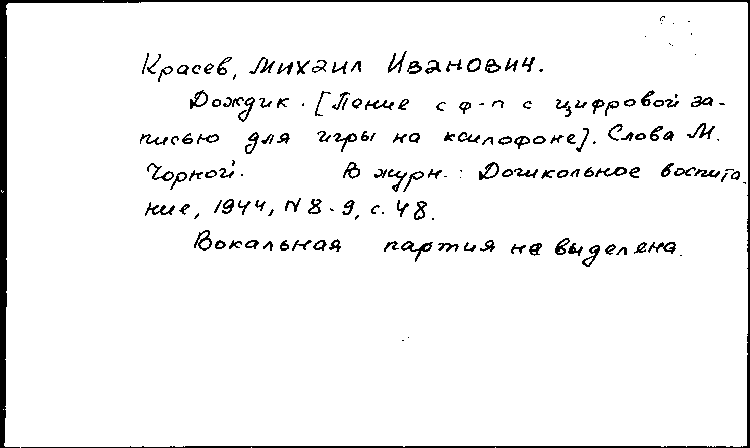 Красев, Михаил Иванович.
Дождик. [Пение с ф-п с цифровой за-
писью для игры на ксилофоне]. Слова М.
Чорной. В журн.: Дошкольное воспита-
ние, 1944, N 8-9, с. 48.
Вокальная партия не выделена.